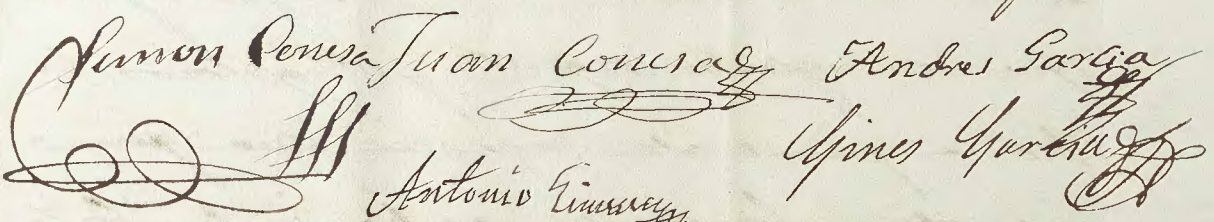 Simon Conesa Juan Conesa Andres Garcia
Gines Garcia
Antonio